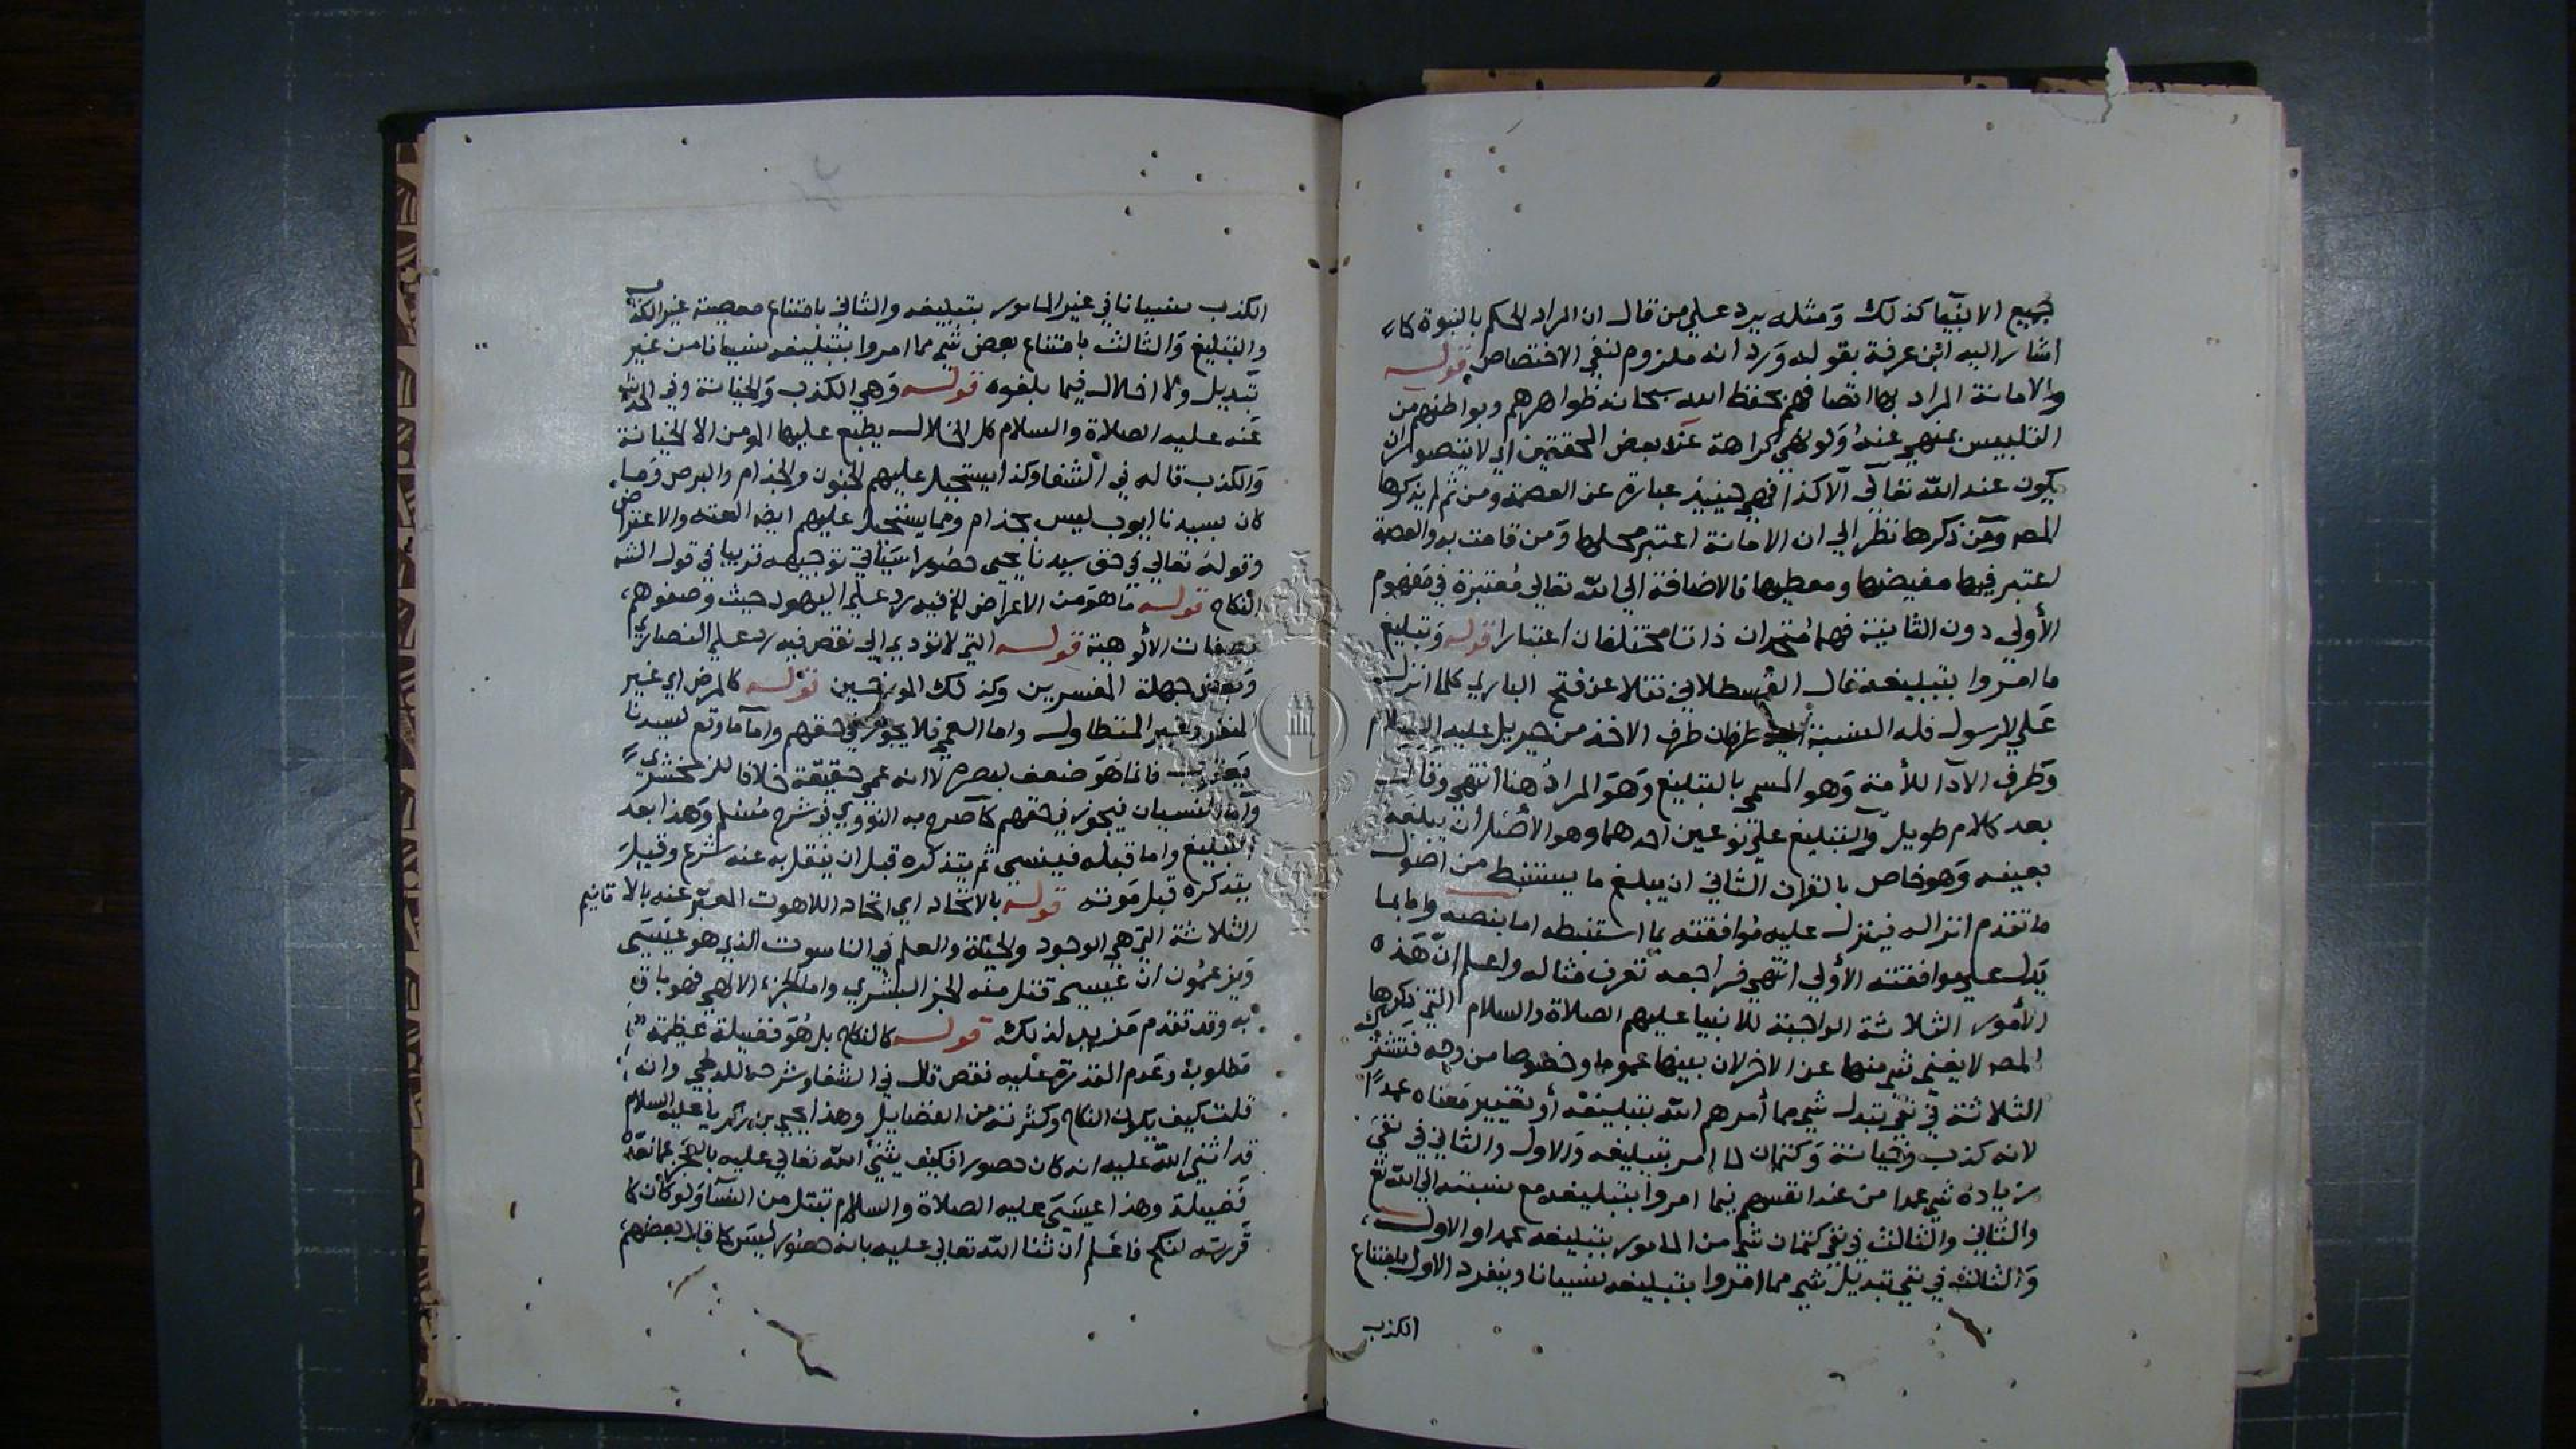 جميع الانبيا كذلك ومثله يرد علي من قال ان المراد الحكم بالنبوة كما
اشار اليه ابن عرفة بقوله ورد انه ملزوم لنفي الاختصاص قوله
والامانة المراد بها اتصافهم بحفظ الله سبحانه ظواهرهم وبواطنهم من
التلبيس بمنهي عنه ولو نهي كراهة عند بعض المحققين اي لا يتصور ان
يكون عند الله تعالي الا كذا فهي حينيذ عبارة عن العصمة ومن ثم لم يذكرها
المصه ومن ذكرها نظر الي ان الامانة اعتبر محلها ومن قامت به والعصمة
اعتبر فيها مفيضها ومعطيها فالاضافة الي الله تعالي معتبرة في مفهوم
الأولي دون الثانية فهما متحدان ذاتا مختلفان اعتبارا قوله وتبليغ
ما امروا بتبليغه قال القسطلاني نقلا عن فتح الباري كلما انزل
علي الرسول فله بالنسبة اليه طرفان طرف الاخذ من جبريل عليه السلام
وطرف الآدا للأمة وهو المسمي بالتبليغ وهو المراد هنا انتهي وقال
بعد كلام طويل والتبليغ علي نوعين احدهما وهو الأصل أن يبلغه
بعينه وهو خاص بالقران الثاني ان يبلغ ما يستنبط من اصول
ما تقدم انزاله فينزل عليه موافقته بما استنبطه اما بنصه واما بما
يدل علي موافقته الأولي انتهي فراجعه تعرف مثاله واعلم ان هذه
الأمور الثلاثة الواجبة للانبيا عليهم الصلاة والسلام التي ذكرها
المصه لا يغني شي منها عن الاخر لان بينها عموما وخصوصا من وجه فتشترك
الثلاثة في نفي تبدل شي مما أمرهم الله بتبليغه أو تغيير معناه عمدا
لانه كذب وخيانة وكتمان لما امر بتبليغه والاول والثاني في نفي
زيادة شي عمدا من عند انفسهم فيما امروا بتبليغه مع نسبته الي الله تع
والثاني والثالث في نفي كتمان شي من المامور بتبليغه عمدا والاول
والثالث في نفي تبديل شي مما امروا بتبليغه نسيانا وينفرد الاول بامتناع
الكذب
الكذب نسيانا في غير المامور بتبليغه والثاني بامتناع معصية غير الكذب
والتبليغ والثالث بامتناع بعض شي مما امروا بتبليغه نسيانا من غير
تبديل ولا اخلال فيما بلغوه قوله وهي الكذب والخيانة وفي الحديث
عنه عليه الصلاة والسلام كل الخلال يطبع عليها المومن الا الخيانة
والكذب قاله في الشفا وكذا يستحيل عليهم الجنون والجذام والبرص وما
كان بسيدنا ايوب ليس بجذام ومما يستحيل عليهم ايضا العنه والاعتراض
وقوله تعالي في حق سيدنا يحيي حصورا سياتي توجيهه قريبا في قول الشه
النكاح قوله ما هو من الاعراض الخ فيه رد علي اليهود حيث وصفوهم
بصفات الألوهية قوله التي لا تؤدي الي نقص فيه رد علي النصاري
وبعض جهلة المفسرين وكذلك المورخين قوله كالمرض اي غير
المنفر وغير المتطاول واما العمي فلا يجوز في حقهم وامآ ما وقع لسيدنا
يعقوب فانما هو ضعف لبصره لا انه عمي حقيقة خلافا للزمخشري
واما النسيان فيجوز في حقهم كما صرح به النووي في شرح مسلم وهذا بعد
التبليغ واما قبله فينسي ثم يتذكره قبل ان ينقل به عنه شرع وقيل
يتذكره قبل موته قوله بالاتحاد اي اتحاد اللاهوت المعبر عنه بالاقانيم
الثلاثة التي هي الوجود والحياة والعلم في الناسوت الذي هو عيسي
ويزعمون ان عيسي قتل منه الجز البشري واما الجزء الالهي فهو باق
به وقد تقدم مزيد لذلك قوله كالنكاح بل هو فضيلة عظيمة
مطلوبة وعدم القدرة عليه نقص قال في الشفا وشرحه للدلجي وانه
قلت كيف يكون النكاح وكثرته من الفضايل وهذا يحيي بن زكريا عليه السلام
قد اثني الله عليه انه كان حصورا فكيف يثني الله تعالي عليه بالعجز عما تعده
فضيلة وهذا عيسي عليه الصلاة والسلام تبتل من النسآ ولو كان كما
قررته لنكح فاعلم أن ثنا الله تعالي عليه بانه حصور ليس كما قال بعضهم